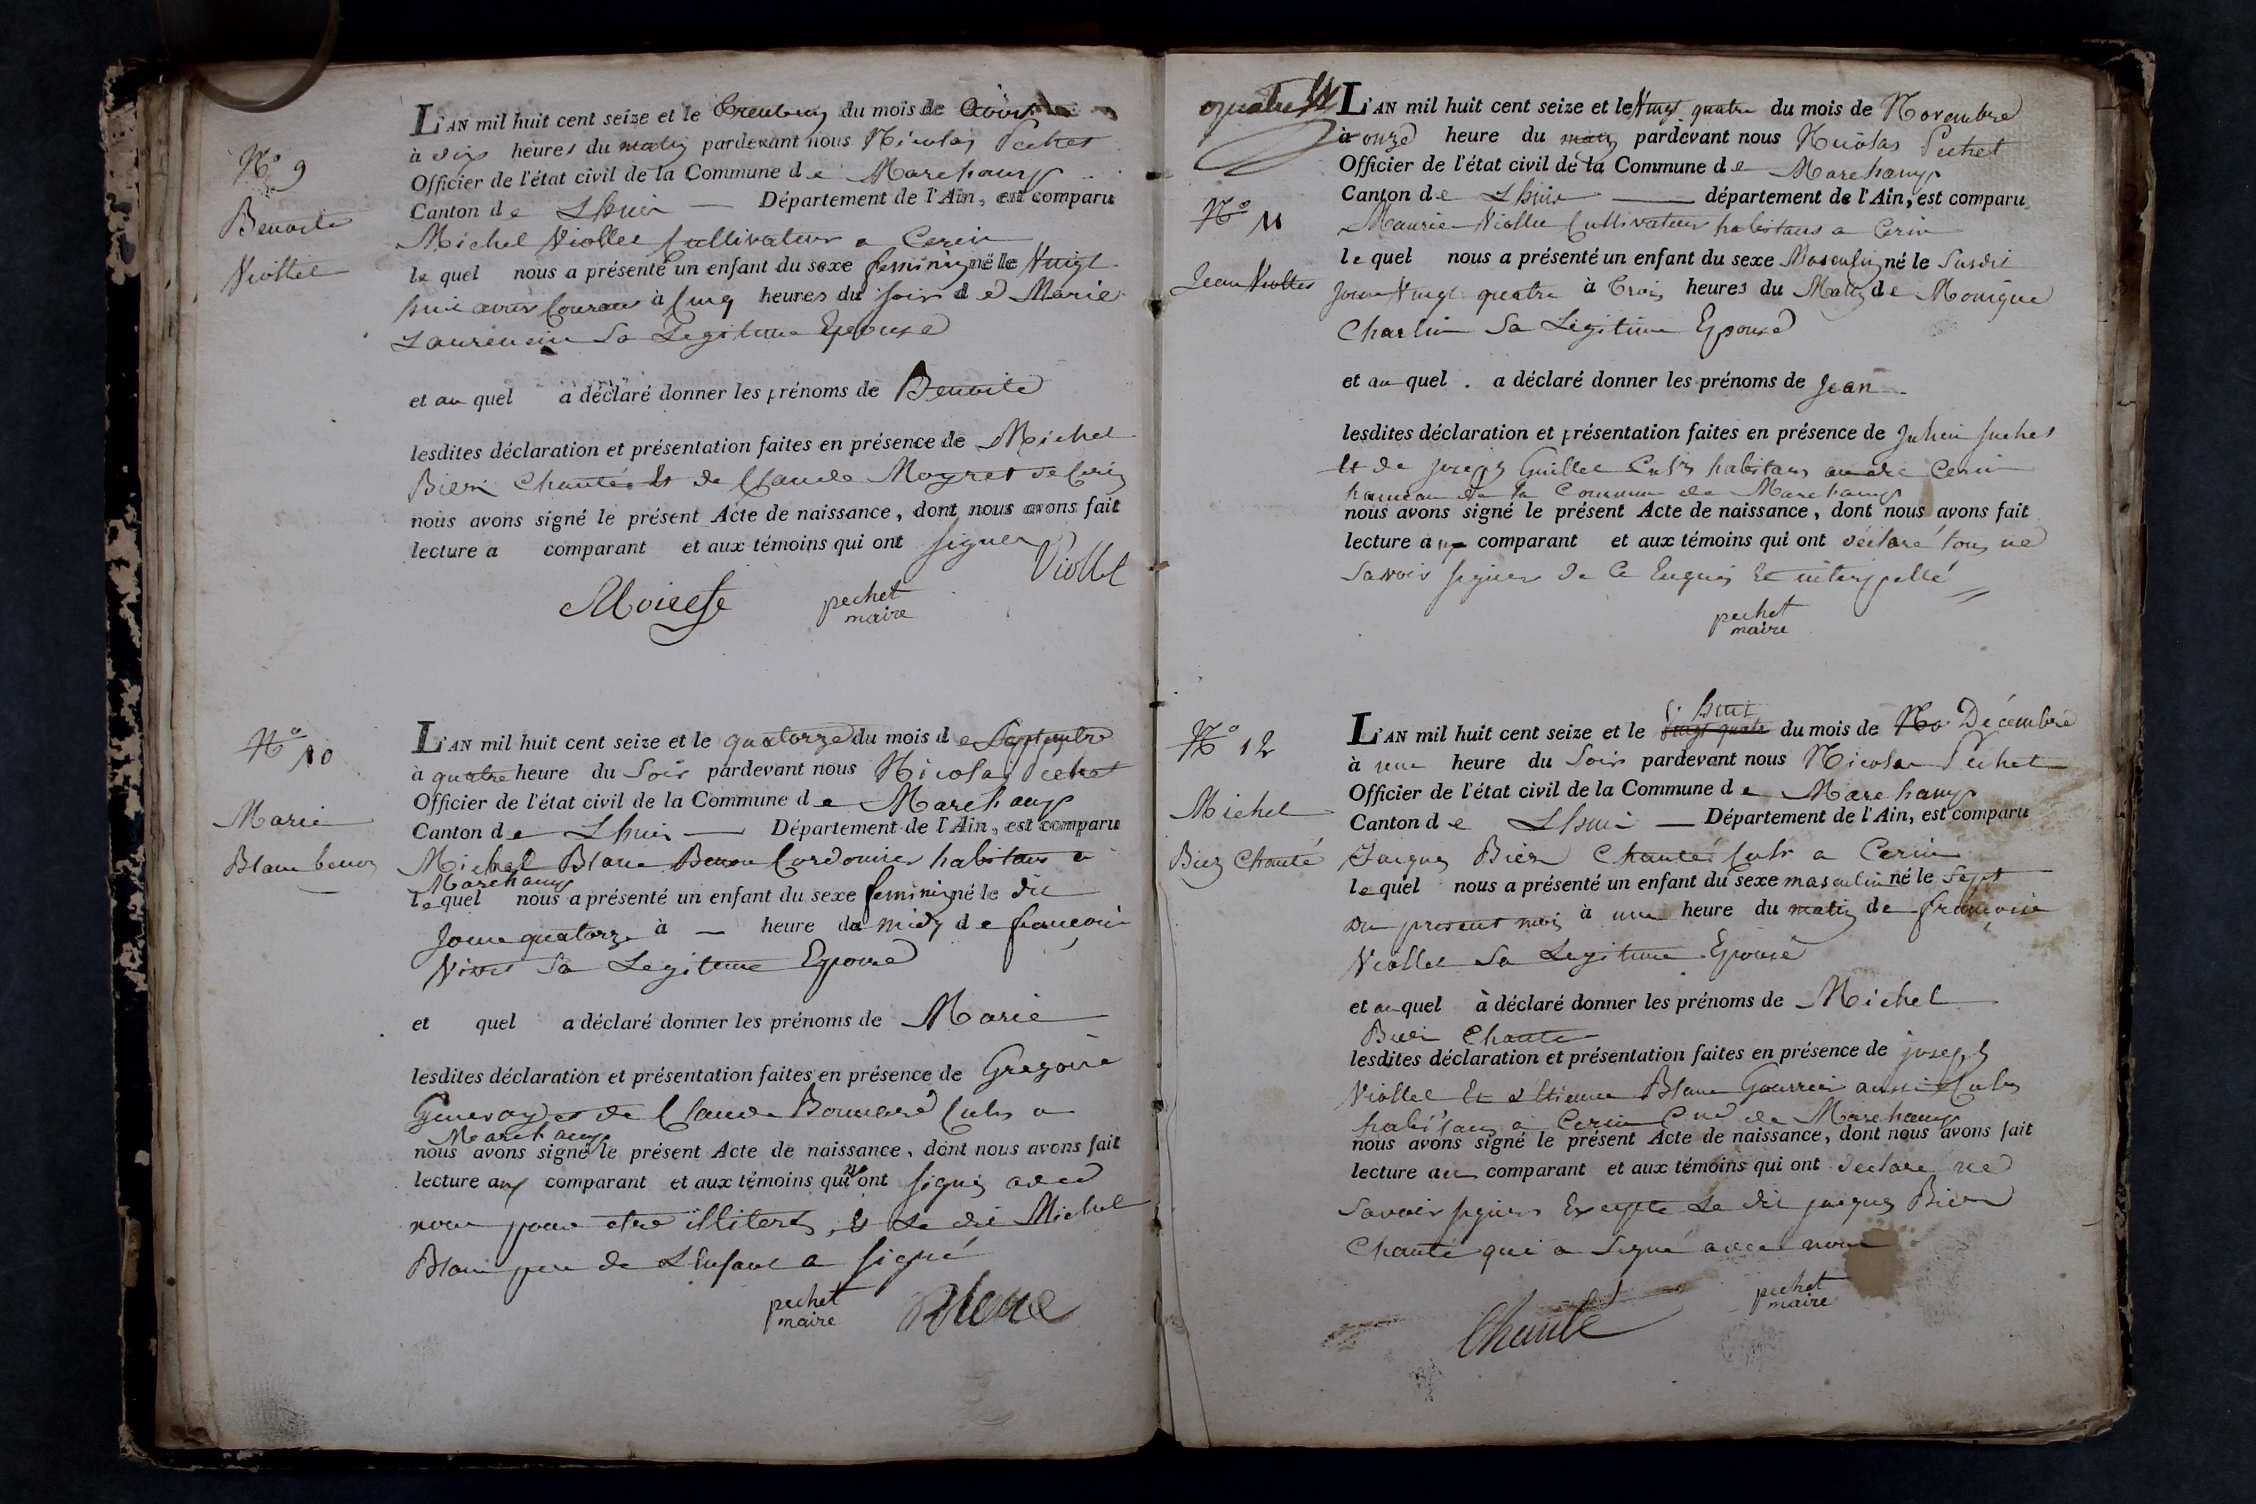 N° 9
Benoite
Viollet
L'AN mil huit cent seize et le trente un du mois de Aoust
à dix heures du matin pardevant nous Nicolas Pechet
Officier de l'état civil de la Commune de Marchamp
Canton de Lhuis Département de l'Ain, est comparu
Michel Viollet Cultivateur a Cerin
lequel nous a présenté un enfant du sexe feminin né le Vingt
huit aout courant à Cinq heures du soir de Marie
Laurencin Sa Legitime Epouse
et au quel a déclaré donner les prénoms de Benoite
lesdites déclaration et présentation faites en présence de Michel
Bien Chanté Et de Claude Moyret de Cerin
nous avons signé le présent Acte de naissance, dont nous avons fait
lecture a comparant et aux témoins qui ont signer
Viollet
pechet
maire
N° 10
Marie
Blanc benon
L'AN mil huit cent seize et le quatorze du mois de Septembre
à quatre heure du Soir pardevant nous Nicolas Pechet
Officier de l'état civil de la Commune de Marchamp
Canton de Lhuis Département de l'Ain, est comparu
Michel Blanc Benon Cordonier habitant a
Marchamp
lequel nous a présenté un enfant du sexe feminin né le dit
Jour quatorze à heure du midy de francoise
Sa Legitime Epouse
et quel a déclaré donner les prénoms de Marie
lesdites déclaration et présentation faites en présence de Gregoire
Genevay et de Claude Bonnard Cultrs a
Marchamp
nous avons signé le présent Acte de naissance, dont nous avons fait
lecture aux comparant et aux témoins qui n'ont signés avec
nous pour etre illiterés, Et Le dit Michel
Blanc pere de L'Enfant a signé
pechet
maire
Blanc
quatre
N° 11
Jean Viollet
L'AN mil huit cent seize et le Vingt quatre du mois de Novembre
à onze heure du matin pardevant nous Nicolas Pechet
Officier de l'état civil de la Commune de Marchamp
Canton de Lhuis département de l'Ain, est comparu
Maurice Viollet Cultivateur habitant a Cerin
lequel nous a présenté un enfant du sexe Masculin né le Susdit
Jour Vingt quatre à Trois heures du Matin de Monique
Charlin Sa Légitime Epouse
et au quel a déclaré donner les prénoms de Jean
lesdites déclaration et présentation faites en présence de Julien
Et de Joseph Guillet Cultrs habitans audit Cerin
hameau de la Commune de Marchamp
nous avons signé le présent Acte de naissance, dont nous avons fait
lecture au comparant et aux témoins qui ont déclaré tous ne
Savoir signer de Ce Enquis Et interpellé
pechet
maire
N° 12
Michel
Bien Chanté
huit
L'AN mil huit cent seize et le vingt quatre du mois de No Décembre
à une heure du Soir pardevant nous Nicolas Pechet
Officier de l'état civil de la Commune de Marchamp
Canton de Lhuis Département de l'Ain, est comparu
Jacques Bien Chanté Cultr a Cerin
lequel nous a présenté un enfant du sexe masculin né le Sept
du present mois à une heure du matin de françoise
Viollet Sa Legitime Epouse
et au quel à déclaré donner les prénoms de Michel
Bien Chanté
lesdites déclaration et présentation faites en présence de joseph
Viollet Et Etienne Blanc Gourrier aussi Cultrs
habitans a Cerin Cne de Marchamp
nous avons signé le présent Acte de naissance, dont nous avons fait
lecture au comparant et aux témoins qui ont déclaré ne
Savoir signer Excepté Le dit jacques Bien
Chanté qui a Signé avec nous
pechet
maire
Chanté